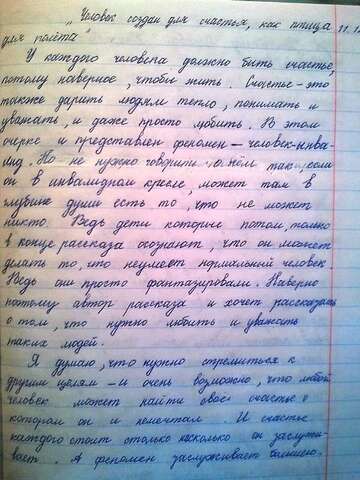 „Человек создан для счастья, как птица
для полёта"
У каждого человека должно быть счастье,
потому наверное, чтобы жить. Счастье-это
также дарить людям тепло, понимать и
уважать, и даже просто любить. В этом
очерке и представлен феномен - человек-инва-
лид. Но не нужно говорить о нём так, если
он в инвалидном кресле, может там в
глубине души есть то, что не может
никто. Ведь дети которые потом, только
в конце рассказа осознают, что он может
делать то, что неумеет нормальный человек.
Ведь они просто фантазировали. Наверно
поэтому автор рассказа и хочет рассказать
о том, что нужно любить и уважать
таких людей.
Я думаю, что нужно стремиться к
другим целям - и очень возможно, что любой
человек может найти своё счастье о
котором он и немечтал. И счастье
каждого стоит столько насколько он заслужи-
вает. А феномен заслуживает большего.